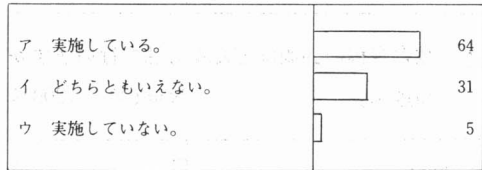 ア 実施している。 64
イ どちらともいえない。 31
ウ 実施していない。 5